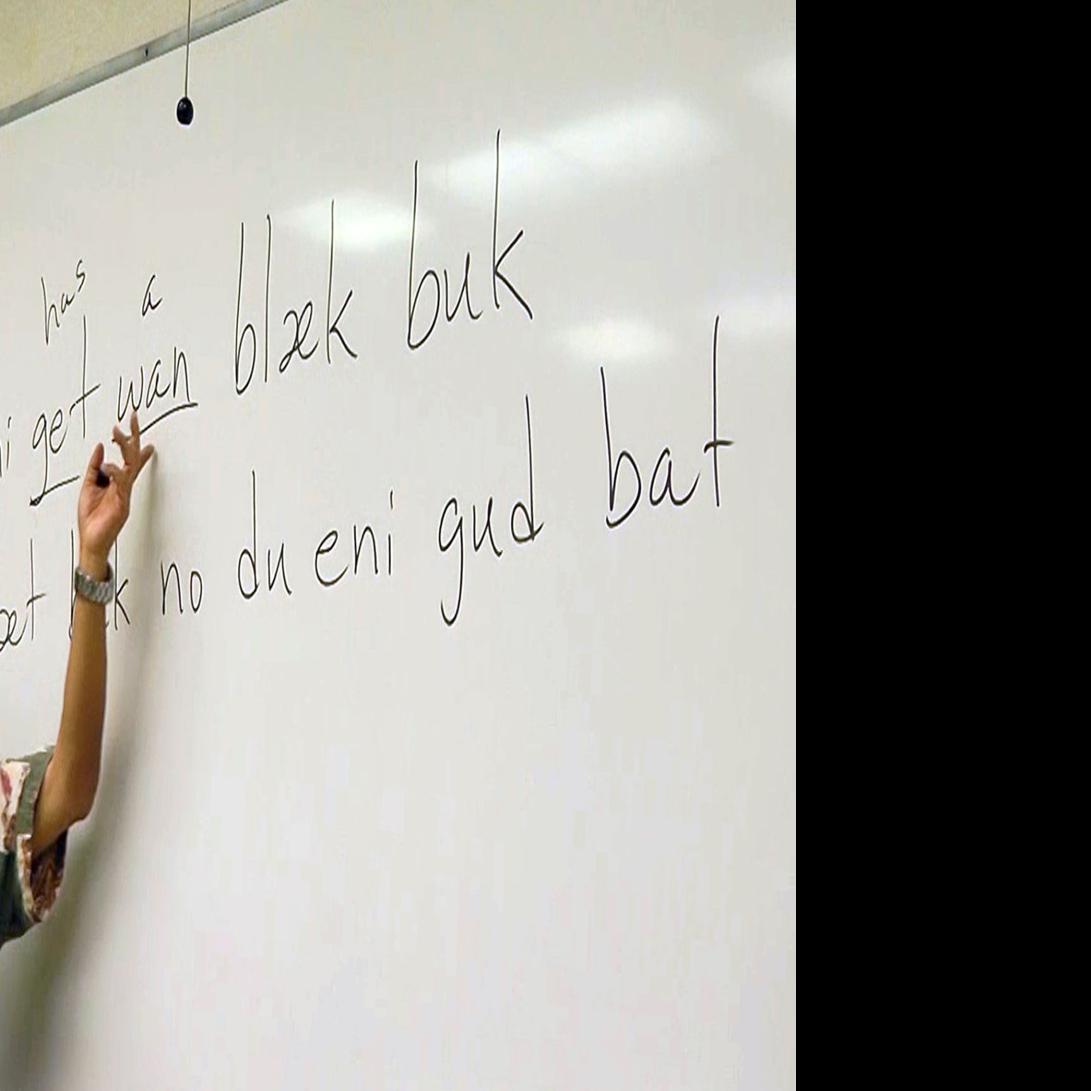 has a
get wan blæk buk
no du eni gud bat